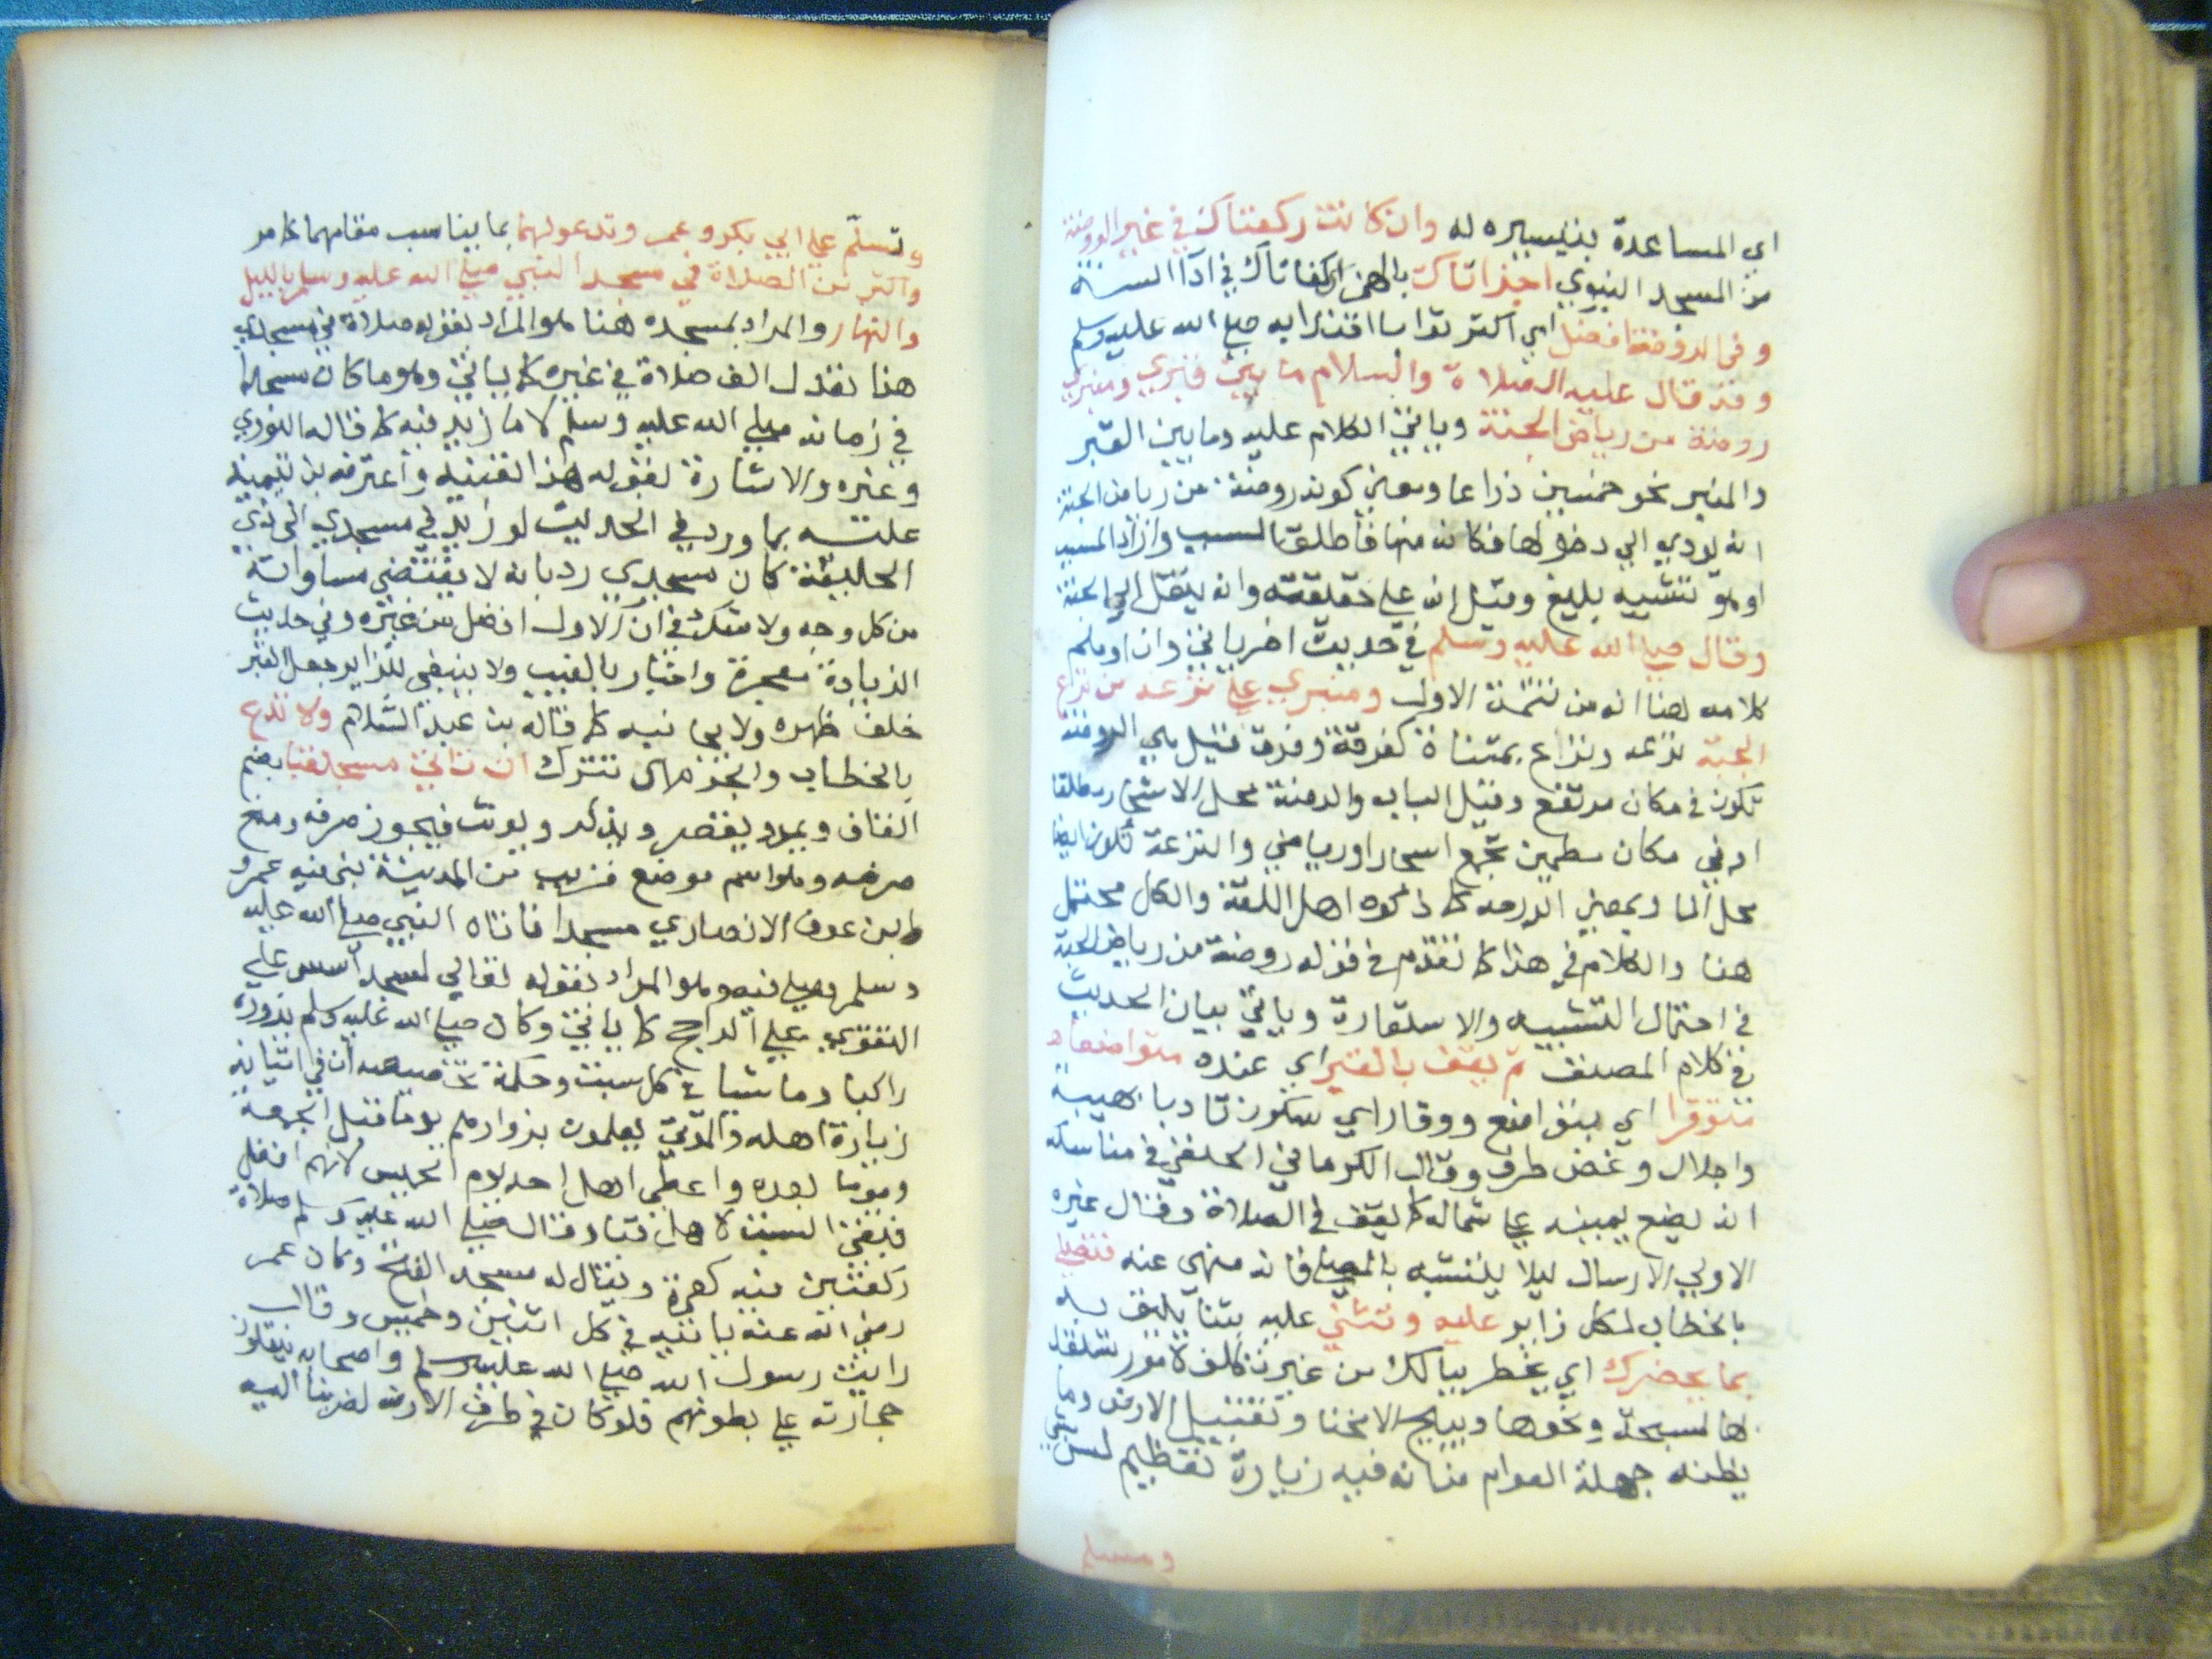 اي المساعدة بتيسيره له وان كانت ركعتاك في غير الروضة
من المسجد النبوي اجزاتاك بالهمز اي كفاتاك في ادآ السنة
وفي الروضة افضل اي اكثر ثوابا اقتدابه صلي الله عليه وسلم
وقد قال عليه الصلاة والسلام ما بين قبري ومنبري
روضة من رياض الجنة وياتي الكلام عليه وما بين القبر
والمنبر نحو خمسين ذراعا ومعني كونه روضة من رياض الجنة
انه يودي الي دخولها فكانه منها فاطلق السبب واراد المسبب
اوهو تشبيه بليغ وقيل انه علي حقيقته وانه ينقل الي الجنة
وقال صلي الله عليه وسلم في حديث اخر ياتي وان اوهم
كلامه هنا انه من تتمة الاول ومنبري علي ترعة من ترع
الجنة ترعه وتراع بمثناة كغرفة وغرف قيل هي الروضة
تكون في مكان مرتفع وقيل الباب والروضة محل الاشجار مطلقا
او في مكان مطمين تجمع اشجارا ورياضي والترعة تكون ايضا
محل الما وبمعني الدرجه كما ذكره اهل اللغة والكل محتمل
هنا والكلام في هذا كما تقدم في قوله روضة من رياض الجنة
في احتمال التشبيه والاستعارة وياتي بيان الحديث
في كلام المصنف ثم يقف بالقبر اي عنده متواضعا
متوقرا اي بتواضع ووقار اي سكون تادبا بهيبة
واجلال وغض طرف وقال الكرماني الحنفي في مناسكه
انه يضع يمينه علي شماله كما يقف في الصلاة وقال غيره
الاولي الارسال ليلا يتشبه بالمصلي فانه منهي عنه فتصلي
بالخطاب لكل زاير عليه وتثني عليه بثنا يليق به
بما يحضرك اي يخطر ببالك من غير تكلف لامور تتلقف
ها لسجدة ونحوها ويباح الانحنا وتقبيل الارض وما
يظنه جهلة العوام من انه فيه زيارة تعظيم ليس بشي
وتسلم
وتسلم علي ابي بكر وعمر وتدعو لهما بما يناسب مقامهما كما مر
واكثر من الصلاة في مسجد النبي صلي الله عليه وسلم بالليل
والنهار والمراد بمسجده هنا هو المراد بقوله صلاة في مسجدي
هذا تعدل الف صلاة في غيره كما ياتي وهو ما كان مسجدا
في زمانه صلي الله عليه وسلم لا ما زيد فيه كما قاله النووي
وغيره والاشارة لقوله هذا تفيده واعترضه بن تيمية
علته بما ورد في الحديث لو زيد في مسجدي الي ذي
الحليفة كان مسجدي رد بانه لا يقتضي مساواته
من كل وجه ولا شك في ان الاول افضل من غيره وفي حديث
الزيادة معجزة واخبار بالغيب ولا ينبغي للزاير جعل القبر
خلف ظهره ولا بجانبه كما قاله بن عبد السلام ولا تدع
بالخطاب والجزم اي تترك ان تاتي مسجد قبا بضم
القاف ويمد ويقصر ويذكر ويونث فيجوز صرفه ومنع
صرفه وهو اسم موضع قريب من المدينة بني فيه عمرو
بن عوف الانصاري مسجدا فاتاه النبي صلي الله عليه
وسلم وصلي فيه وهو المراد بقوله تعالي لمسجد اسس علي
التقوي علي الراجح كما ياتي وكان صلي الله عليه وسلم يزوره
راكبا وماشيا في كل سبت وحكمة تخصيصه ان في اتيانه
زيارة اهله والموتي يعلمون بزوارهم يوما قبل الجمعة
ويوما بعده واعطي اهل احد يوم الخميس لانهم افضل
فبقي السبت لاهل قبا وقال صلي الله عليه وسلم صلاة
ركعتين فيه كعمرة ويقال له مسجد الفتح وكان عمر
رضي الله عنه ياتيه في كل اثنين وخميس وقال
رايت رسول الله صلي الله عليه وسلم واصحابه ينقلون
حجارته علي بطونهم فلو كان في طرف الارض لضربنا اليه